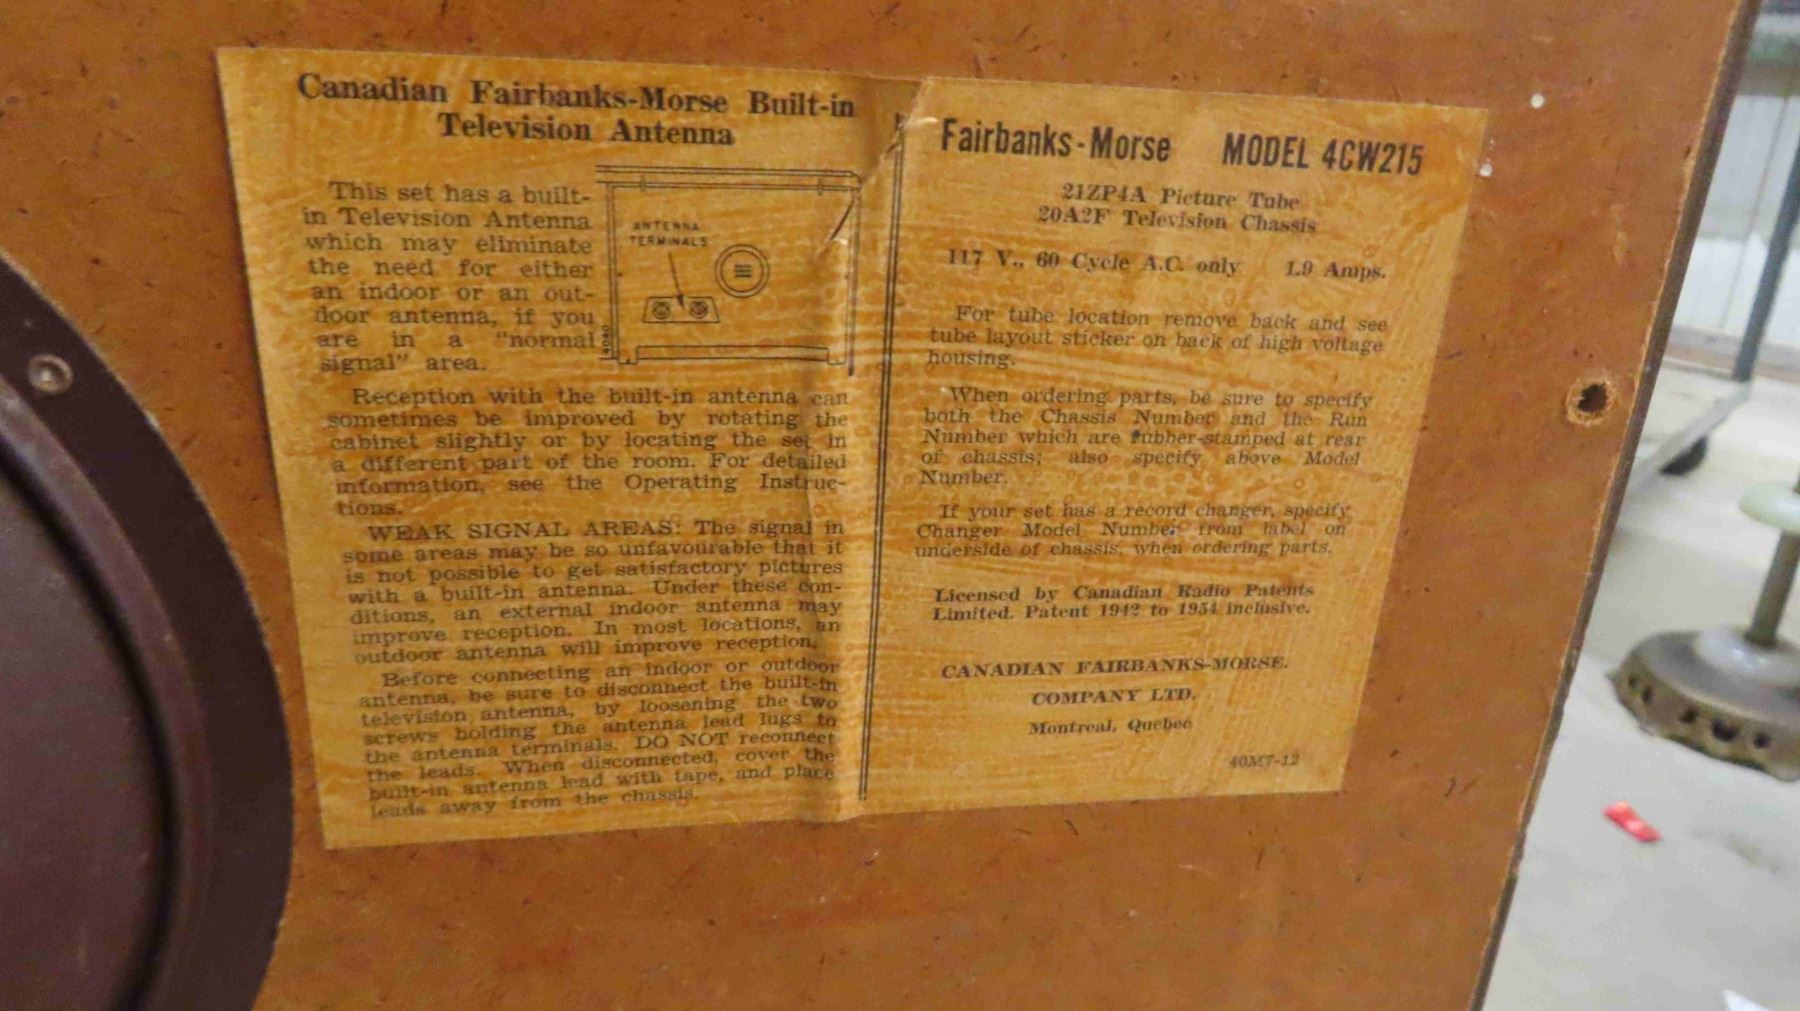 Canadian Fairbanks-Morse Built-in
Television Antenna
This set has a built-
in Television Antenna
which may eliminate
the need for either
an indoor or an out-
door antenna, if you
are in a "normal
signal" area.
ANTENNA
TERMINALS
Reception with the built-in antenna can
sometimes be improved by rotating the
cabinet slightly or by locating the set in
a different part of the room. For detailed
information, see the Operating Instruc-
tions.
WEAK SIGNAL AREAS: The signal in
some areas may be so unfavourable that it
is not possible to get satisfactory pictures
with a built-in antenna. Under these con-
ditions, an external indoor antenna may
improve reception. In most locations, an
outdoor antenna will improve reception.
Before connecting an indoor or outdoor
antenna, be sure to disconnect the built-in
television antenna, by loosening the two
screws holding the antenna lead lugs to
the antenna terminals. DO NOT reconnect
the leads. When disconnected, cover the
built-in antenna lead with tape, and place
leads away from the chassis.
Fairbanks-Morse MODEL 4CW215
21ZP4A Picture Tube
20A2F Television Chassis
117 V., 60 Cycle A.C. only 1.9 Amps.
For tube location remove back and see
tube layout sticker on back of high voltage
housing.
When ordering parts, be sure to specify
both the Chassis Number and the Run
Number which are rubber-stamped at rear
of chassis; also specify above Model
Number.
If your set has a record changer, specify
Changer Model Number from label on
underside of chassis, when ordering parts.
Licensed by Canadian Radio Patents
Limited. Patent 1942 to 1954 inclusive.
CANADIAN FAIRBANKS-MORSE.
COMPANY LTD.
Montreal, Quebec
40M7-12